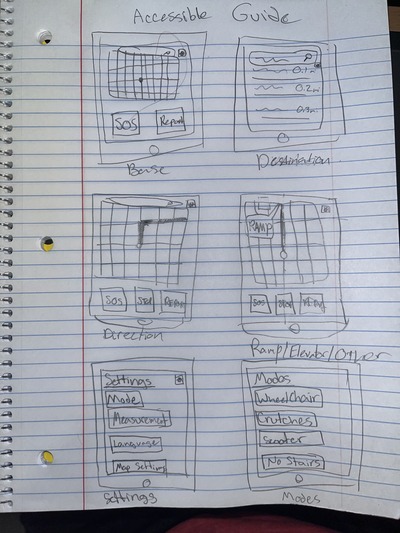 Accessible Guide
SOS
Report
Base
0.1m
0.2m
0.3m
Destination
SOS
Stop
Report
Direction
RAMP
SOS
STOP
Ramp/Elevator/Other
Settings
Mode
Measurement
Language
Map Settings
Settings
Modes
WheelChair
Crutches
Scooter
No Stairs
Modes